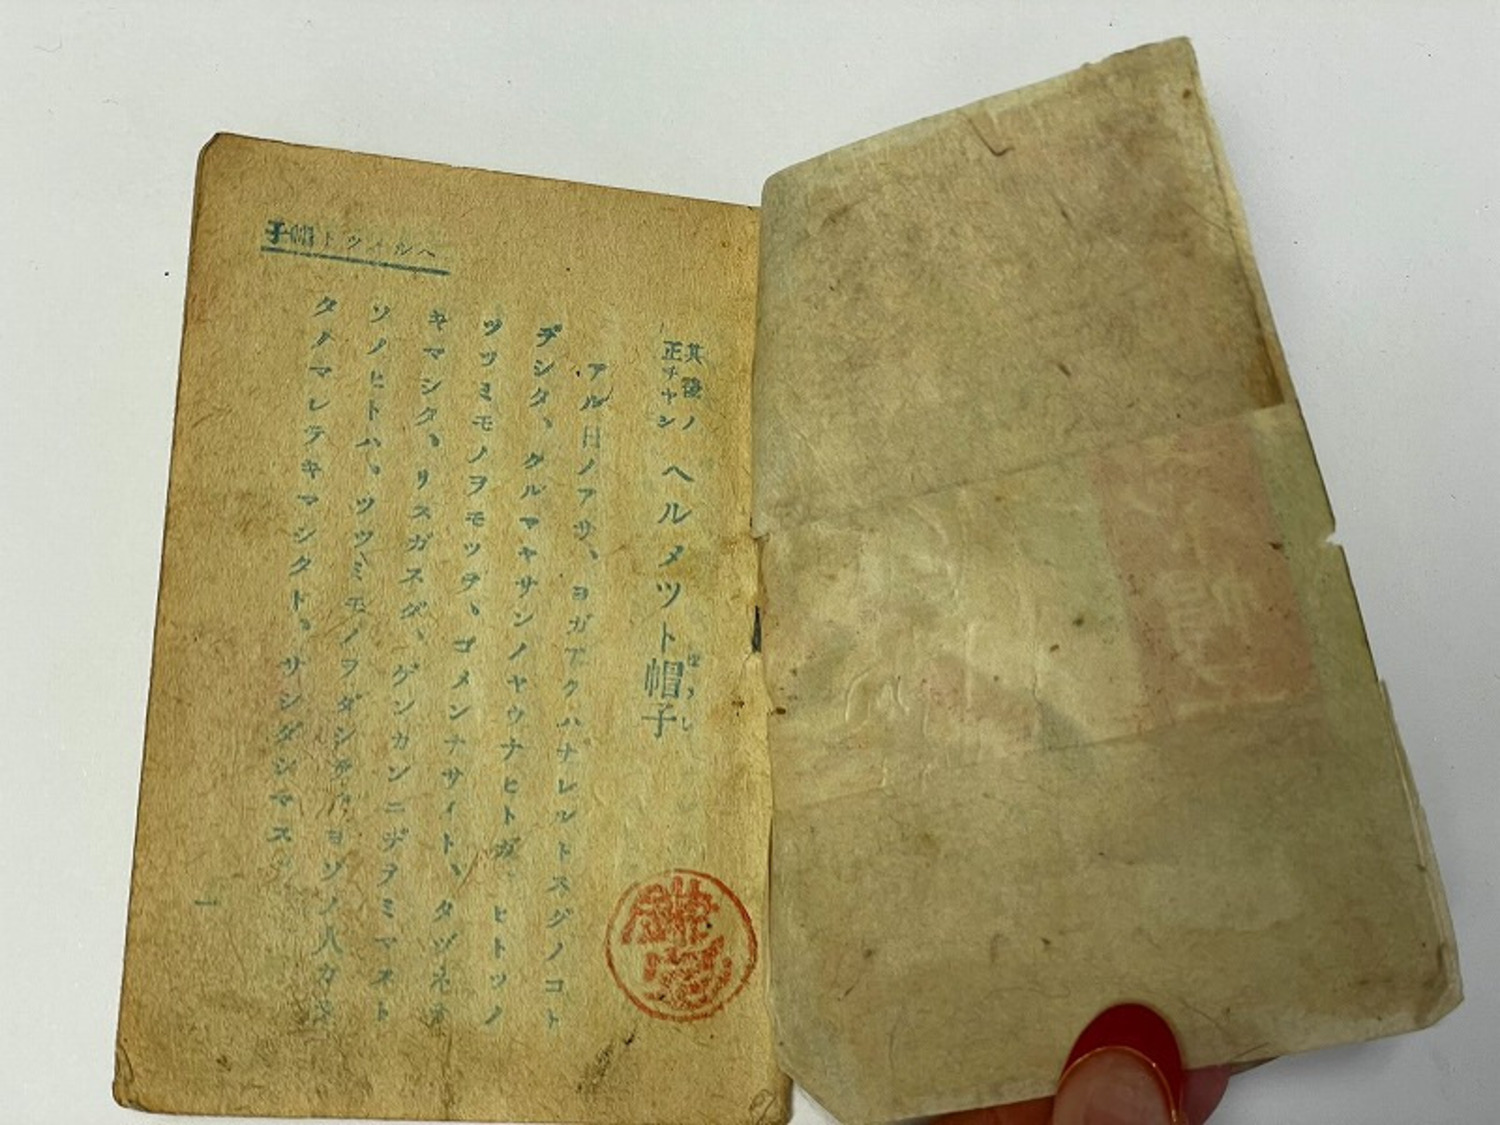 ヘルメツト帽子
其後ノ
正チヤン
ヘルメツト帽子
ぼうし
アル日ノアサ、ヨガアケハナレルトスグノコト
デシタ、クルマヤサンノヤウナヒトガ、ヒトツノ
ツツミモノヲモツテ、ゴメンナサイト、タヅネテ
キマシタ、リスガスグ、ゲンカンニデテミマスト
ソノヒトハ、ツツミモノヲダシテ ヨソノ人カラ
タノマレテキマシタト、サシダシマス。
一